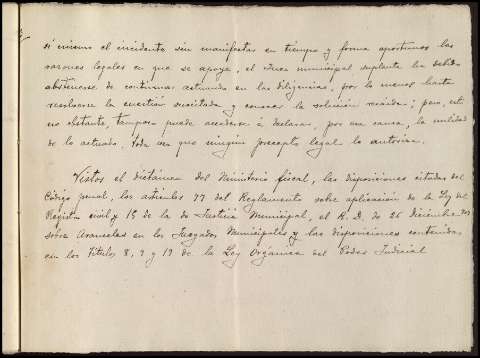 sí mismo el incidente sin manifestar en tiempo y forma oportunos las
razones legales en que se apoya, el Juez municipal suplente ha debido
abstenerse de continuar actuando en las diligencias, por lo menos hasta
resolverse la cuestión suscitada y conocer la solución recaida; pero, esto
no obstante, tampoco puede accederse á declarar, por esa causa, la nulidad
de lo actuado, toda vez que ningún precepto legal lo autoriza.
Vistos el dictámen del Ministerio fiscal, las disposiciones citadas del
Código penal, los artículos 77 del Reglamento sobre aplicación de la Ley del
Registro civil y 15 de la de Justicia Municipal, el R. D. de 26 Diciembre
sobre Aranceles en los Juzgados Municipales y las disposiciones contenidas
en los Títulos 8, 9 y 19 de la Ley Orgánica del Poder Judicial